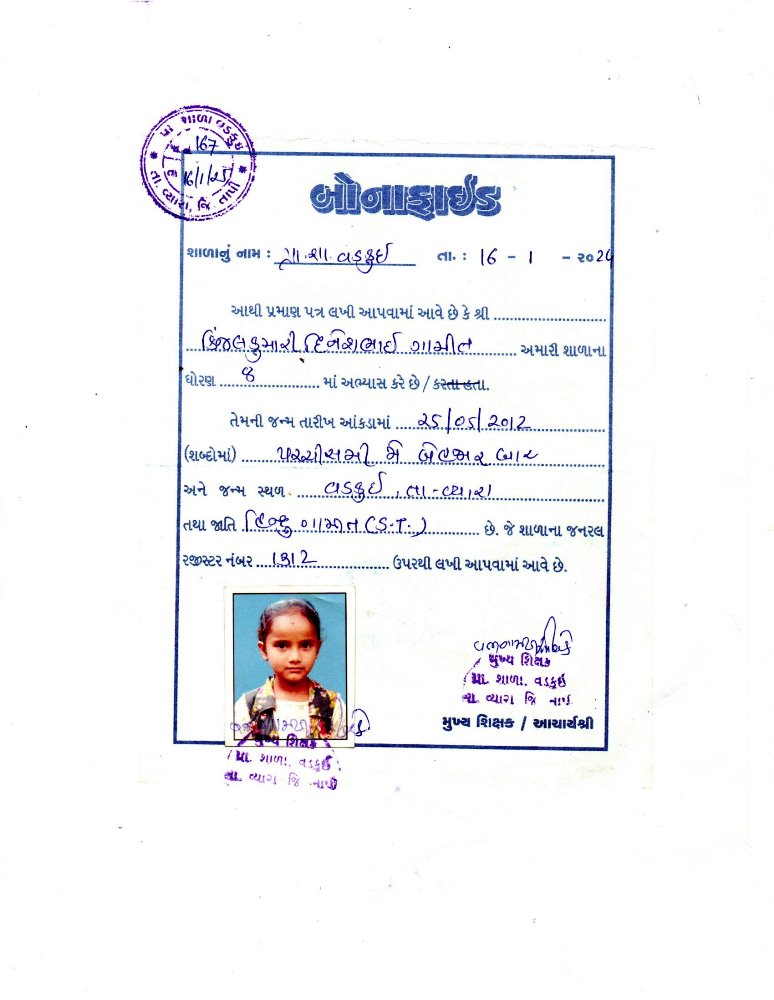 પ્રા. શાળા વડકુઇ
167
16/1/25
તા. વ્યારા, જિ. તાપી
બોનાફાઈડ
શાળાનું નામ : પ્રા. શા. વડકુઈ તા. : 16 - 1 - ૨૦24
આથી પ્રમાણ પત્ર લખી આપવામાં આવે છે કે શ્રી
કિંજલકુમારી દિનેશભાઈ ગામીત અમારી શાળાના
ધોરણ 8 માં અભ્યાસ કરે છે / કરતા હતા.
તેમની જન્મ તારીખ આંકડામાં 25/05/2012
(શબ્દોમાં) પચ્ચીસમી મે બેહજાર બાર
અને જન્મ સ્થળ વડકુઈ, તા-વ્યારા
તથા જાતિ હિન્દુ ગામીત (S.T.) છે. જે શાળાના જનરલ
રજીસ્ટર નંબર 1312 ઉપરથી લખી આપવામાં આવે છે.
મુખ્ય શિક્ષક
પ્રા. શાળા. વડકુઈ
તા. વ્યારા જિ તાપી
મુખ્ય શિક્ષક / આચાર્યશ્રી
મુખ્ય શિક્ષક
પ્રા. શાળા. વડકુઈ
તા. વ્યારા જિ તાપી